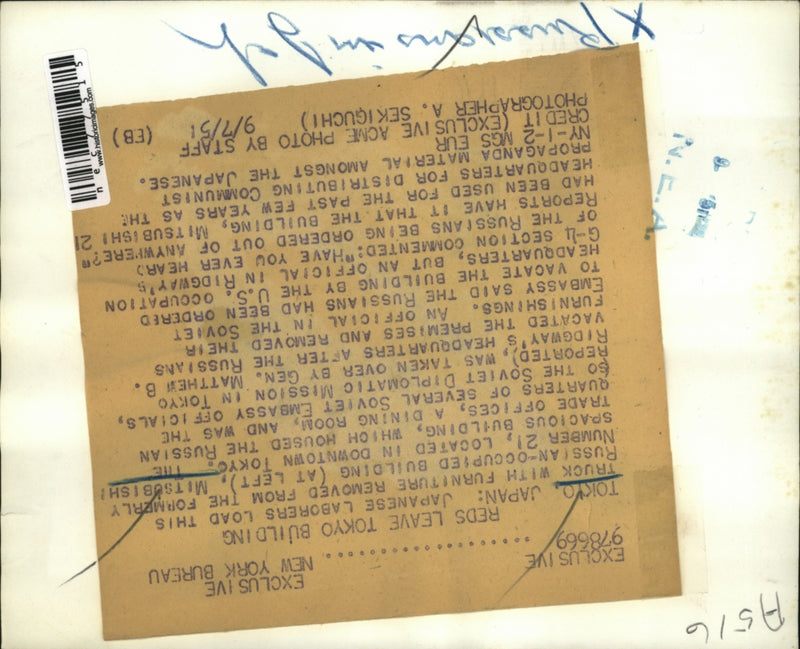 A516
EXCLUSIVE EXCLUSIVE
978669 NEW YORK BUREAU
REDS LEAVE TOKYO BUILDING
TOKYO JAPAN: JAPANESE LABORERS LOAD THIS
TRUCK WITH FURNITURE REMOVED FROM THE FORMERLY
RUSSIAN-OCCUPIED BUILDING (AT LEFT), MITSUBISHI
NUMBER 21, LOCATED IN DOWNTOWN TOKYO. THE
SPACIOUS BUILDING, WHICH HOUSED THE RUSSIAN
TRADE OFFICES, A DINING ROOM, AND WAS THE
QUARTERS OF SEVERAL SOVIET EMBASSY OFFICIALS,
(SO THE SOVIET DIPLOMATIC MISSION IN TOKYO
REPORTED), WAS TAKEN OVER BY GEN. MATTHEW B.
RIDGWAY'S HEADQUARTERS AFTER THE RUSSIANS
VACATED THE PREMISES AND REMOVED THEIR
FURNISHINGS. AN OFFICIAL IN THE SOVIET
EMBASSY SAID THE RUSSIANS HAD BEEN ORDERED
TO VACATE THE BUILDING BY THE U.S. OCCUPATION
HEADQUARTERS, BUT, AN OFFICIAL IN RIDGWAY'S
G-4 SECTION COMMENTED: "HAVE YOU EVER HEARD
OF THE RUSSIANS BEING ORDERED OUT OF ANYWHERE?"
REPORTS HAVE IT THAT THE BUILDING, MITSUBISHI 21
HAD BEEN USED FOR THE PAST FEW YEARS AS THE
HEADQUARTERS FOR DISTRIBUTING COMMUNIST
PROPAGANDA MATERIAL AMONGST THE JAPANESE.
NY-1-2 MGS EUR
CREDIT (EXCLUSIVE ACME PHOTO BY STAFF
PHOTOGRAPHER A. SEKIGUCHI) 9/7/51 (EB)
X Russians in Jap
N.E.A.
www.historicimages.com
nec17515